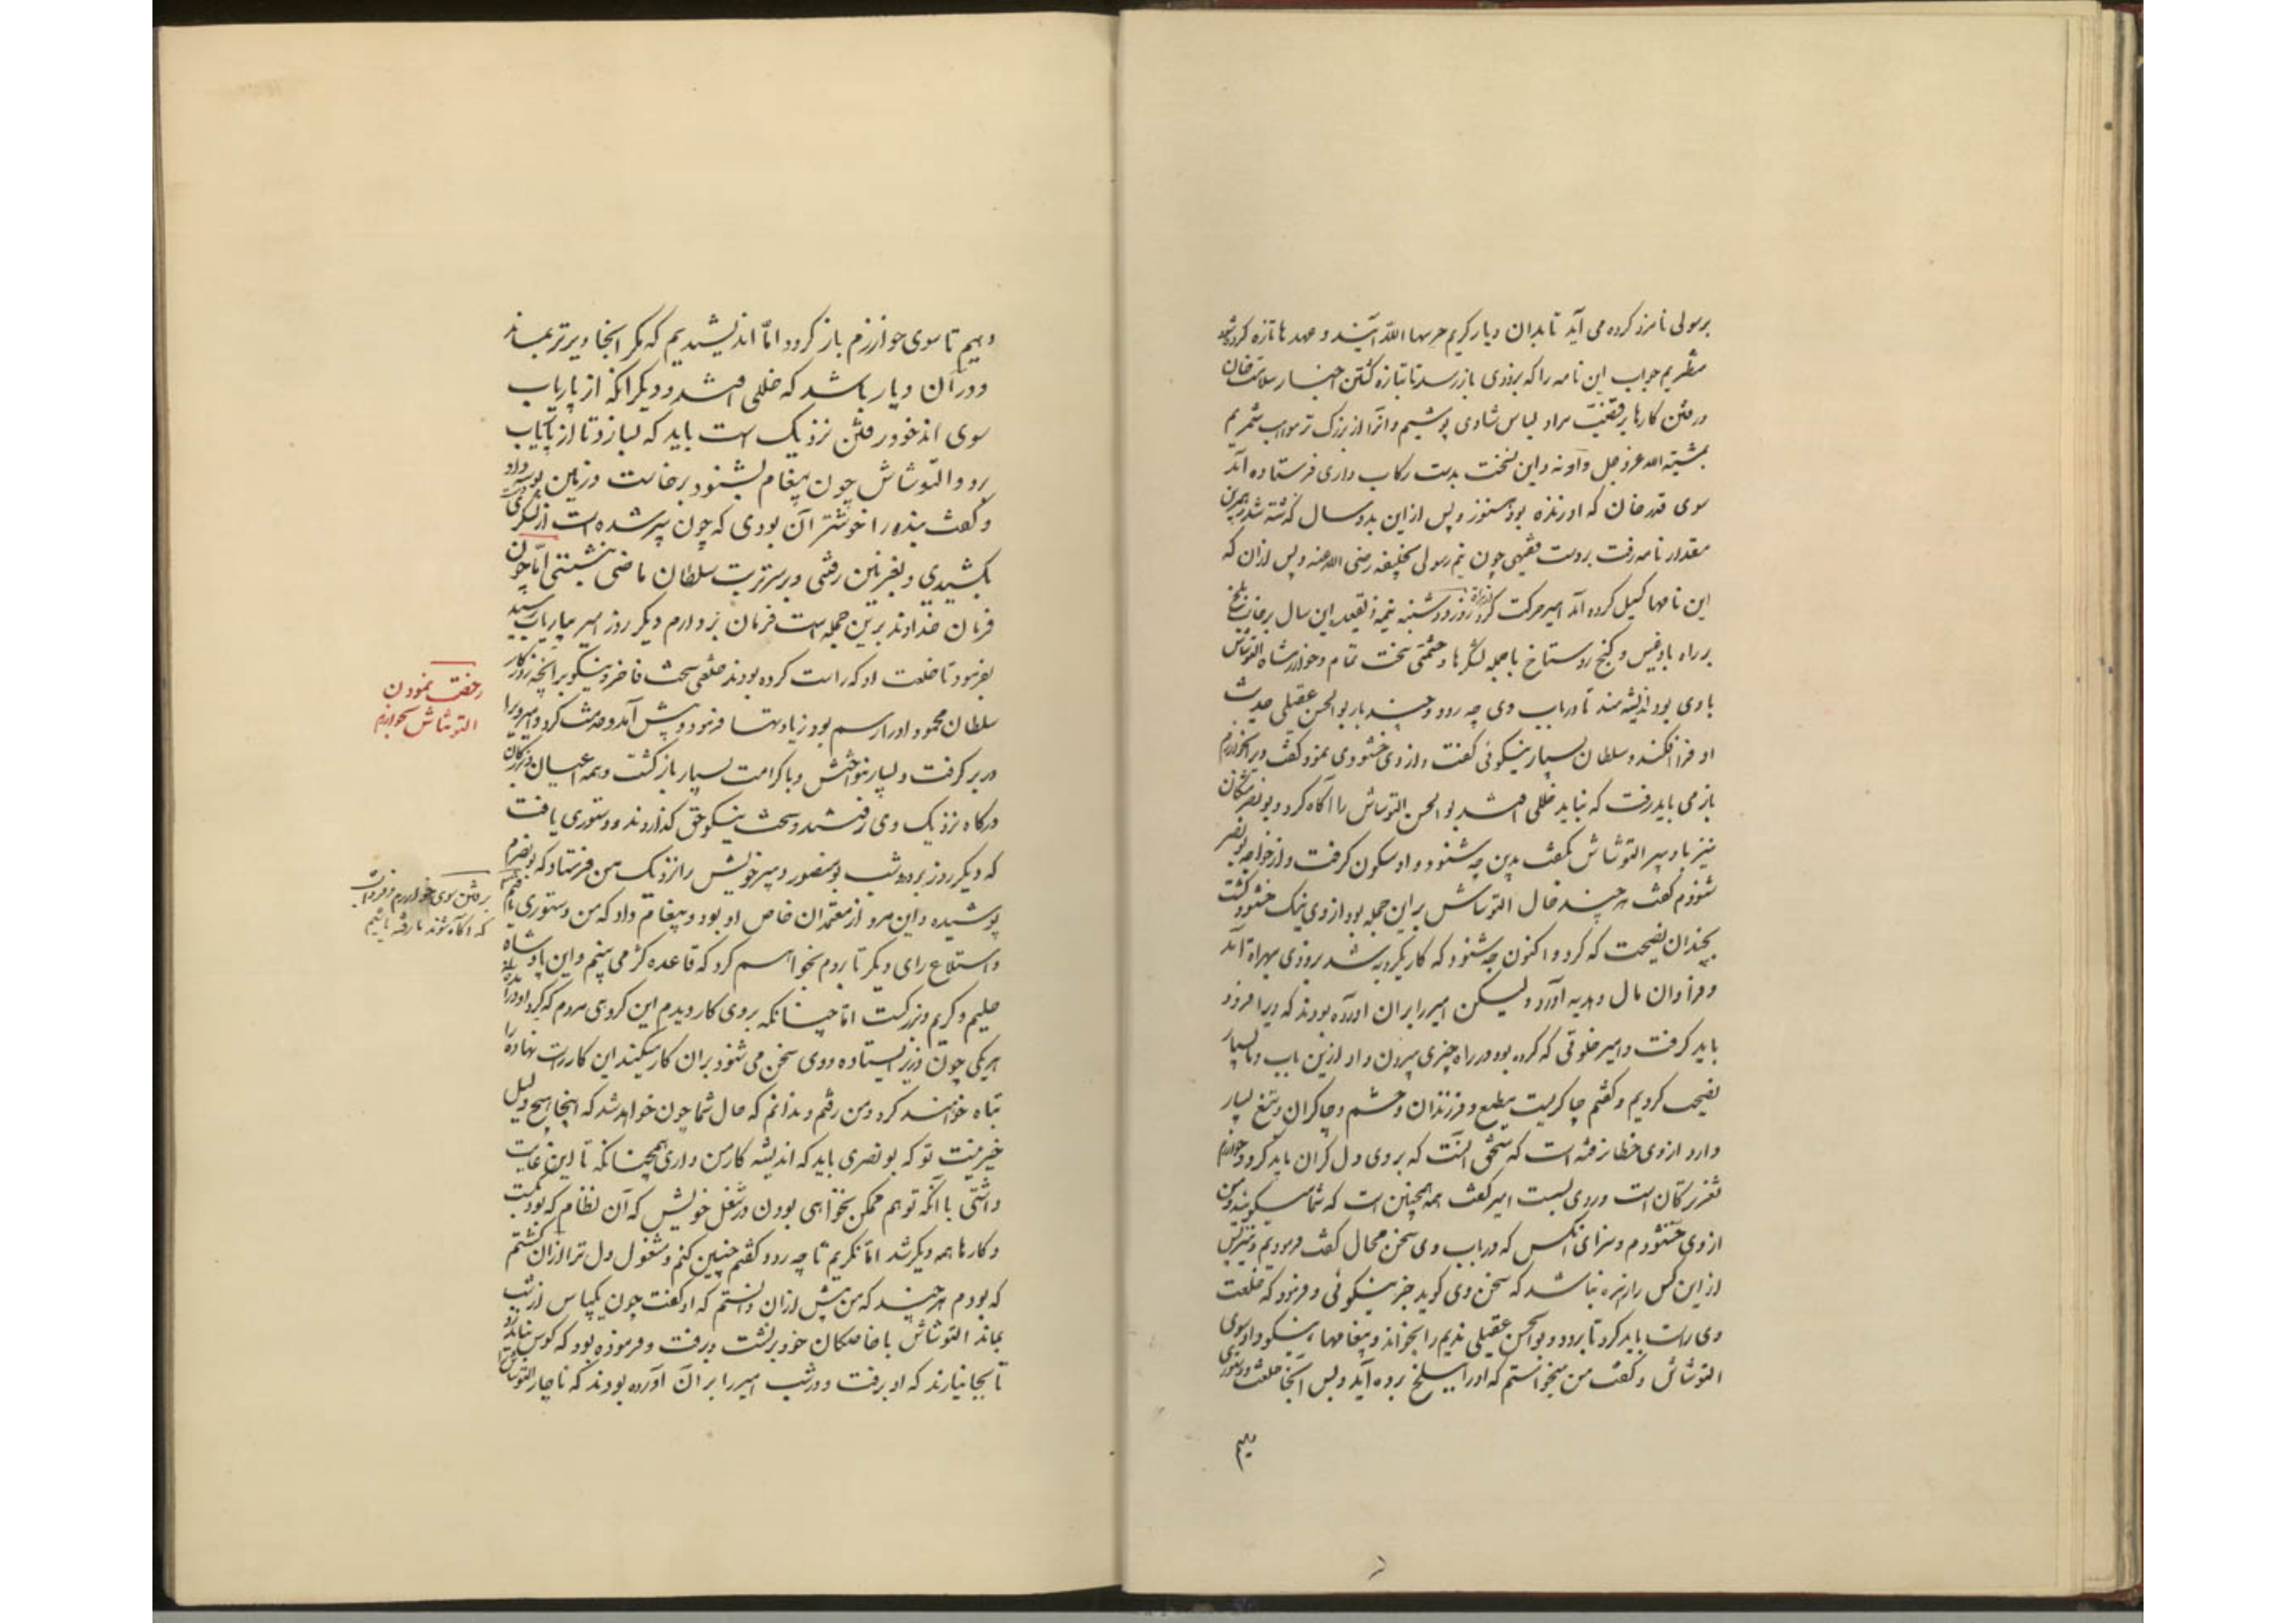 برسولی نامزد کرده می آید تا بدان دیار کریم حرسها الله آیند و عهدها تازه کرده شود
منتظریم جواب این نامه را که بزودی باز رسد تا بتازه گشتن اخبار سلامت خان
و رفتن کارها بر قضیت مراد لباس شادی پوشیم و آنرا از بزرگ تر مواهب شمریم
بمشیة الله عز و جل و اذنه و این نسخت بدست رکاب داری فرستاده آمد
سوی قدر خان که او زنده بود هنوز و پس ازین بدو سال گذشته شد و هم برین
مقدار نامه رفت بر دست فقیهی چون نیم رسولی بخلیفه رضی الله عنه و پس از ان که
این نامها گسیل کرده آمد امیر حرکت کرد از هراة روز دوشنبه نیمه ذیقعده این سال بر جانب بلخ
بر راه بادغیس و گنج روستاخ با جمله لشگرها و حشمتی سخت تمام و خوارزمشاه التونتاش
با وی بود اندیشه مند تا در باب وی چه رود و چند بار بوالحسن عقیلی حدیث
او فرا افکند و سلطان بسیار نیکوئی گفت و از وی خشنودی نمود و گفت ویرا بخوارزم
باز می باید رفت که نباید خللی افتد بوالحسن التونتاش را آگاه کرد و بونصر مشکان
نیز با دبیر التونتاش بگفت بدین چه شنود و او سکون گرفت و از خواجه بونصر
شنودم گفت هر چند حال التونتاش بر این جمله بود از وی نیک خشنود گشت
بچندان نصیحت که کرد و اکنون چه شنود که کار یکرویه شد بزودی بهراة آمد
و فراوان مال و هدیه آورد و لیکن امیر را بران آورده بودند که ویرا فرو
باید گرفت و امیر خلوتی که کرده بود در راه چیزی بیرون داد ازین باب و ما بسیار
نصیحت کردیم و گفتیم چاکریست مطیع و فرزندان و حشم و چاکران و تبع بسیار
دارد از وی خطا نرفته است که مستحق آنست که بر وی دل گران باید کرد و خوارزم
ثغر ترکان است و در وی بسته است امیر گفت همه همچنین است که شما میگویید و من
از وی خشنودم و سزای آنکس که در باب وی سخن محال گفت فرمودیم و نیز پس
از این کس را زهره نباشد که سخن وی گوید جز بنیکوئی و فرمود که خلعت
وی راست باید کرد تا برود و بوالحسن عقیلی ندیم را بخواند و پیغامهاء نیکو داد سوی
التونتاش و گفت من میخواستم که او را ببلخ برده آید و پس آنجا خلعت و دستوری
دهیم
دهیم تا سوی خوارزم باز گردد اما اندیشیدیم که مگر انجا دیرتر بماند
و در آن دیار باشد که خللی افتد و دیگر انکه از پاریاب
سوی اندخود رفتن نزدیک است باید که بسازد تا از پاریاب
رود والتونتاش چون پیغام بشنود برخاست و زمین بوسه داد
و گفت بنده را خوشتر آن بودی که چون پیر شده است از لشگری دست
بکشیدی و بغزنین رفتی و بر سر تربت سلطان ماضی بنشستی اما چون
فرمان خداوند برین جمله است فرمان بردارم دیگر روز امیر بپاریاب رسید
بفرمود تا خلعت او که راست کرده بودند خلعتی سخت فاخر و نیکو بر آنچه روزگار
سلطان محمود او را رسم بود زیادتها فرمود و پیش آمد و خدمت کرد و امیر ویرا
در بر گرفت و بسیار بنواختش و با کرامت بسیار باز گشت و همه اعیان و بزرگان
درگاه نزدیک وی رفتند و سخت نیکو حق گذاردند و دستوری یافت
که دیگر روز برود و شب بومنصور دبیر خویش را نزدیک من فرستاد که بونصرم
پوشیده و این مرد از معتمدان خاص او بود و پیغام داد که من دستوری یافتم
و استطلاع رای دیگر تا بروم نخواهم کرد که قاعده کژ می بینم و این پادشاه
حلیم و کریم و بزرگست اما چنانکه بروی کار دیدم این گروهی مردم که گرد او درآمده اند
هریکی چون وزیر ایستاده و وی سخن می شنود بران کار میکند این کار راست نهاده را
تباه خواهند کرد و من رفتم و ندانم که حال شما چون خواهد شد که اینجا هیچ دلیل
خیر نیست تو که بونصری باید که اندیشه کار من داری همچنانکه تا این غایت
داشتی با آنکه تو هم ممکن نخواهی بودن در شغل خویش که آن نظام که بود بگسست
و کارها همه دیگر شد اما نگریم تا چه رود گفتم چنین کنم و مشغول دل تر ازان گشتم
که بودم هر چند که من پیش ازان دانستم که او گفت چون یکپاس از شب
بماند التونتاش با خاصگان خود برنشست و برفت و فرموده بود که کوس نباید زد
تا بجا نیارند که او برفت و در شب امیر را بر آن آورده بودند که ناچار التونتاش را
رخصت نمودن
التونتاش بخوارزم
برفتن سوی خوارزم و فرمان
که آگاه شوند ما رفته باشیم